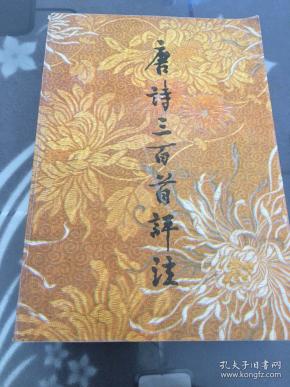 唐詩三百首評注
孔夫子旧书网
kongfz.com